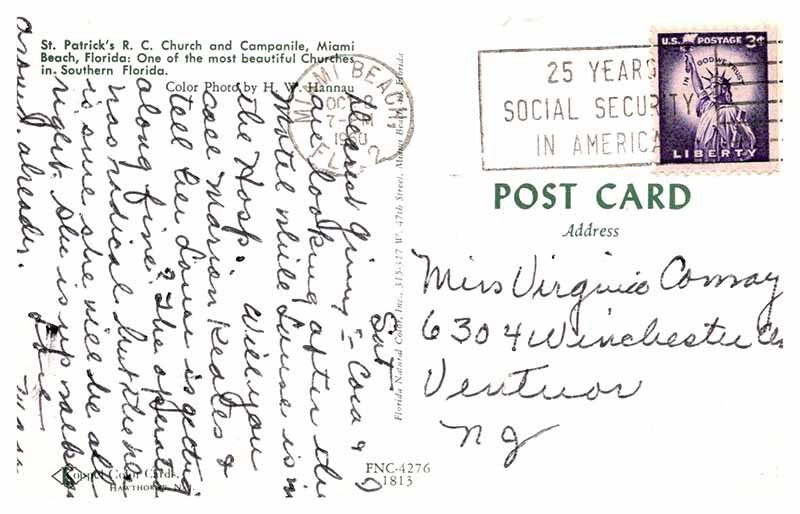 St. Patrick's R. C. Church and Campanile, Miami
Beach, Florida: One of the most beautiful Churches
in Southern Florida.
Color Photo by H. W. Hannau
Sat
Dearest Ginny - Cora & I
are looking after the
Motel while Louise is in
the Hosp. Will you
call Marion Keates &
tell her Louise is getting
along fine. The operation
was radical but the Dr
is sure she will be all
right. She is up walking
around already.
Koppel Color Cards
Hawthorne, N.J.
Florida Natural Color, Inc., 315-317 W. 47th Street, Miami Beach, Florida
FNC-4276
1813
MIAMI BEACH,
OCT
7-
1960
FLA. 2
25 YEARS
SOCIAL SECURITY
IN AMERICA
U.S. POSTAGE 3¢
IN GOD WE TRUST
LIBERTY
POST CARD
Address
Miss Virginia Conway
6304 Winchester
Ventnor
NJ